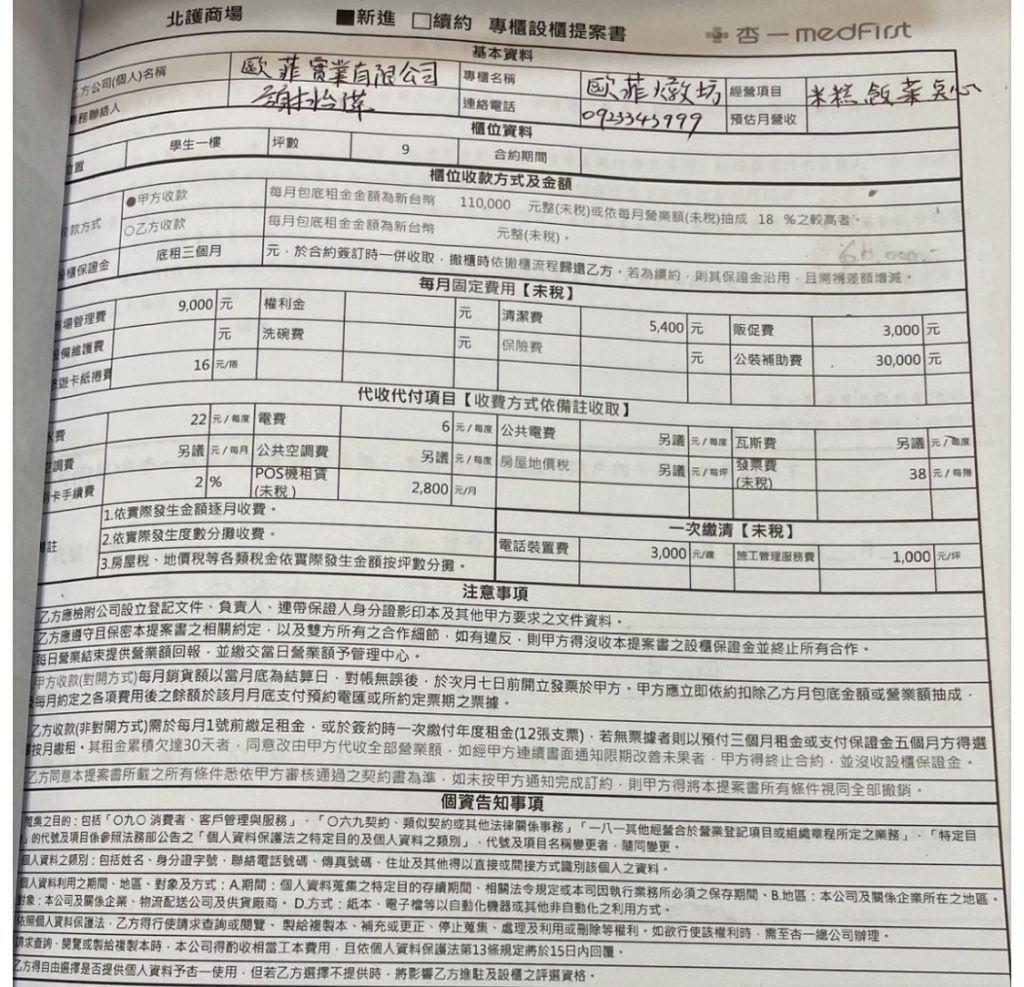 北護商場 ■新進 □續約 專櫃設櫃提案書 杏一 medFirst
基本資料
乙方公司(個人)名稱 歐菲實業有限公司 專櫃名稱 歐菲燉坊 經營項目 米糕飯菜點心
業務聯絡人 謝怡 連絡電話 0923343999 預估月營收
櫃位資料
位置 學生一樓 坪數 9 合約期間
櫃位收款方式及金額
收款方式 ●甲方收款 每月包底租金金額為新台幣 110,000 元整(未稅)或依每月營業額(未稅)抽成 18 %之較高者。
○乙方收款 每月包底租金金額為新台幣 元整(未稅)。
設櫃保證金 底租三個月 元，於合約簽訂時一併收取，撤櫃時依撤櫃流程歸還乙方。若為續約，則其保證金沿用，且需視差額增減。
每月固定費用【未稅】
商場管理費 9,000 元 權利金 元 清潔費 5,400 元 販促費 3,000 元
設備維護費 元 洗碗費 元 保險費 元 公裝補助費 30,000 元
悠遊卡紙捲費 16 元/捲
代收代付項目【收費方式依備註收取】
水費 22 元/每度 電費 6 元/每度 公共電費 另議 元/每度 瓦斯費 另議 元/每度
空調費 另議 元/每月 公共空調費 另議 元/每度 房屋地價稅 另議 元/每坪 發票費(未稅) 38 元/每捲
刷卡手續費 2 % POS機租賃(未稅) 2,800 元/月
備註 1.依實際發生金額逐月收費。
2.依實際發生度數分攤收費。
3.房屋稅、地價稅等各類稅金依實際發生金額按坪數分攤。
一次繳清【未稅】
電話裝置費 3,000 元/線 施工管理服務費 1,000 元/坪
注意事項
乙方應檢附公司設立登記文件、負責人、連帶保證人身分證影印本及其他甲方要求之文件資料。
乙方應遵守且保密本提案書之相關約定，以及雙方所有之合作細節，如有違反，則甲方得沒收本提案書之設櫃保證金並終止所有合作。
每日營業結束提供營業額回報，並繳交當日營業額予管理中心。
甲方收款(對開方式)每月銷貨額以當月底為結算日，對帳無誤後，於次月七日前開立發票於甲方。甲方應立即依約扣除乙方月包底金額或營業額抽成，
及每月約定之各項費用後之餘額於該月月底支付預約電匯或所約定票期之票據。
乙方收款(非對開方式)需於每月1號前繳足租金，或於簽約時一次繳付年度租金(12張支票)，若無票據者則以預付三個月租金或支付保證金五個月方得選
擇按月繳租。其租金累積欠達30天者，同意改由甲方代收全部營業額，如經甲方連續書面通知限期改善未果者，甲方得終止合約，並沒收設櫃保證金。
乙方同意本提案書所載之所有條件悉依甲方審核通過之契約書為準，如未按甲方通知完成訂約，則甲方得將本提案書所有條件視同全部撤銷。
個資告知事項
蒐集之目的：包括「〇九〇 消費者、客戶管理與服務」、「〇六九契約、類似契約或其他法律關係事務」「一八一其他經營合於營業登記項目或組織章程所定之業務」，「特定目
的」的代號及項目係參照法務部公告之「個人資料保護法之特定目的及個人資料之類別」，代號及項目名稱變更者，隨同變更。
個人資料之類別：包括姓名、身分證字號、聯絡電話號碼、傳真號碼、住址及其他得以直接或間接方式識別該個人之資料。
個人資料利用之期間、地區、對象及方式：A.期間：個人資料蒐集之特定目的存續期間、相關法令規定或本司因執行業務所必須之保存期間。B.地區：本公司及關係企業所在之地區。
對象：本公司及關係企業、物流配送公司及供貨廠商。D.方式：紙本、電子檔等以自動化機器或其他非自動化之利用方式。
依照個人資料保護法，乙方得行使請求查詢或閱覽、製給複製本、補充或更正、停止蒐集、處理及利用或刪除等權利。如欲行使該權利時，需至杏一總公司辦理。
請求查詢、閱覽或製給複製本時，本公司得酌收相當工本費用，且依個人資料保護法第13條規定將於15日內回覆。
乙方得自由選擇是否提供個人資料予杏一使用，但若乙方選擇不提供時，將影響乙方進駐及設櫃之評選資格。